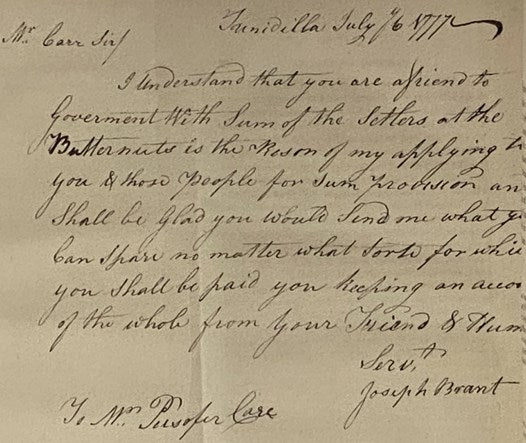 Tunidilla July 6 1777
Mr Carr Sir
I Understand that you are a friend to
Goverment With Sum of the Setlers at the
Butternuts is the Reson of my applying
you & those People for Sum provision an
Shall be Glad you Would Send me what
Can Spare no matter what Sorte for
you Shall be paid you Keeping an
of the whole from Your Friend & Hum
Servt
Joseph Brant
To Mr Carr